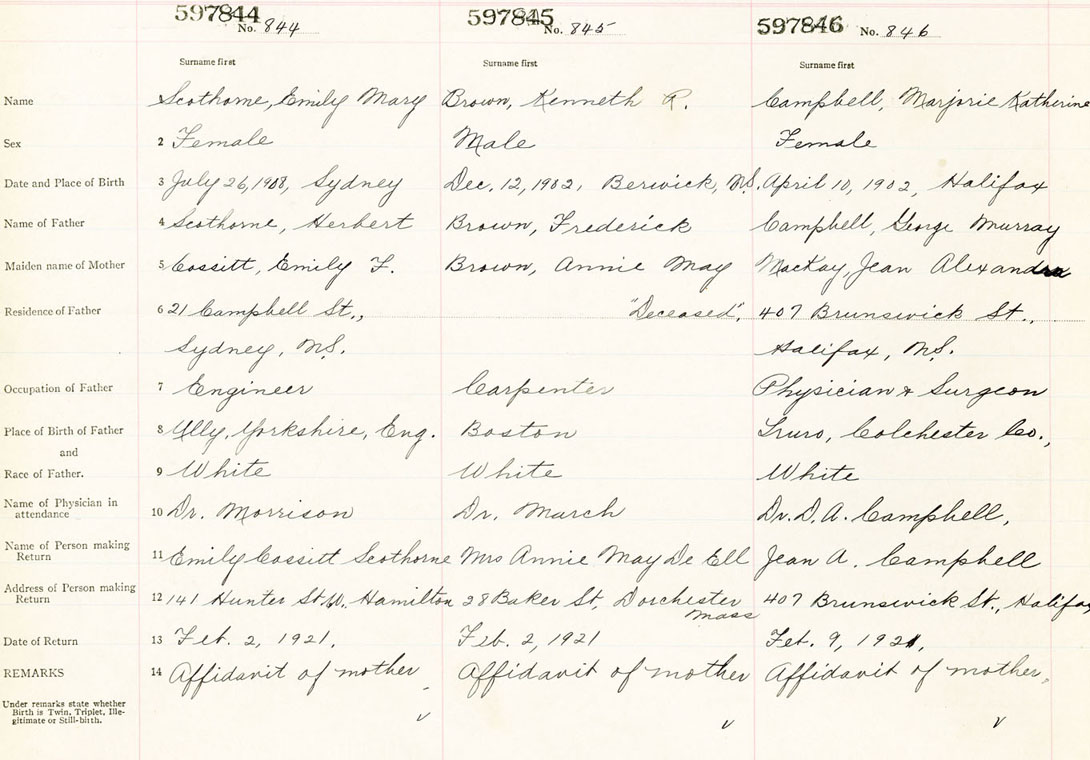 597844 No. 844 597845 No. 845 597846 No. 846
Surname first Surname first Surname first
Name Scothorne, Emily Mary Brown, Kenneth R. Campbell, Marjorie Katherine
Sex 2 Female Male Female
Date and Place of Birth 3 July 26, 1908, Sydney Dec, 12, 1902, Berwick, N.S. April 10, 1902, Halifax
Name of Father 4 Scothorne, Herbert Brown, Frederick Campbell, George Murray
Maiden name of Mother 5 Cossitt, Emily F. Brown, Annie May MacKay, Jean Alexandra
Residence of Father 6 21 Campbell St., "Deceased", 407 Brunswick St.,
Sydney, N.S. Halifax, N.S.
Occupation of Father 7 Engineer Carpenter Physician & Surgeon
Place of Birth of Father 8 Ully, Yorkshire, Eng. Boston Truro, Colchester Co.,
and
Race of Father. 9 White White White
Name of Physician in
attendance 10 Dr. Morrison Dr. March Dr. D. A. Campbell,
Name of Person making
Return 11 Emily Cossitt Scothorne Mrs Annie May De Ell Jean A. Campbell
Address of Person making
Return 12 141 Hunter St. W., Hamilton 28 Baker St, Dorchester 407 Brunswick St., Halifax
Mass
Date of Return 13 Feb. 2, 1921, Feb. 2, 1921 Feb. 9, 1921,
REMARKS 14 Affidavit of mother Affidavit of mother Affidavit of mother,
Under remarks state whether
Birth is Twin, Triplet, Ille-
gitimate or Still-birth.